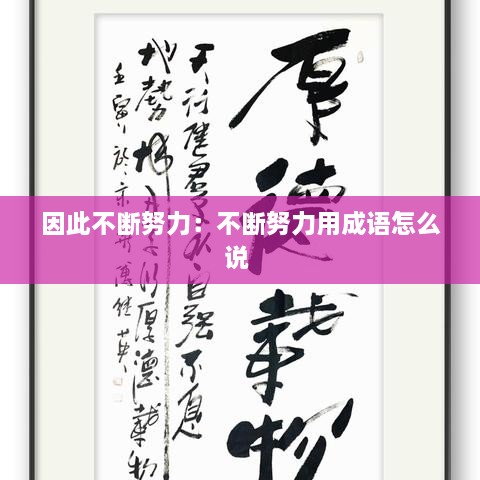 厚德載物
天行健君子以自强不息
地勢坤君子以厚德載物
壬寅於京
因此不断努力：不断努力用成语怎么
说